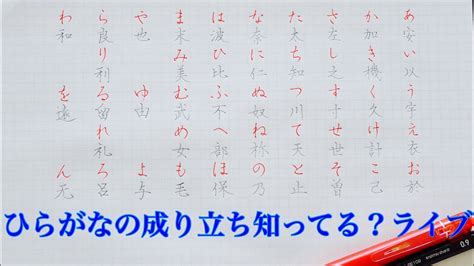 あ安い以う宇え衣お於
か加き機く久け計こ己
さ左し之す寸せ世そ曽
た太ち知つ川て天と止
な奈に仁ぬ奴ね祢の乃
は波ひ比ふ不へ部ほ保
ま末み美む武め女も毛
や也ゆ由よ与
ら良り利る留れ礼ろ呂
わ和を遠ん无
ひらがなの成り立ち知ってる？ライブ
0.9